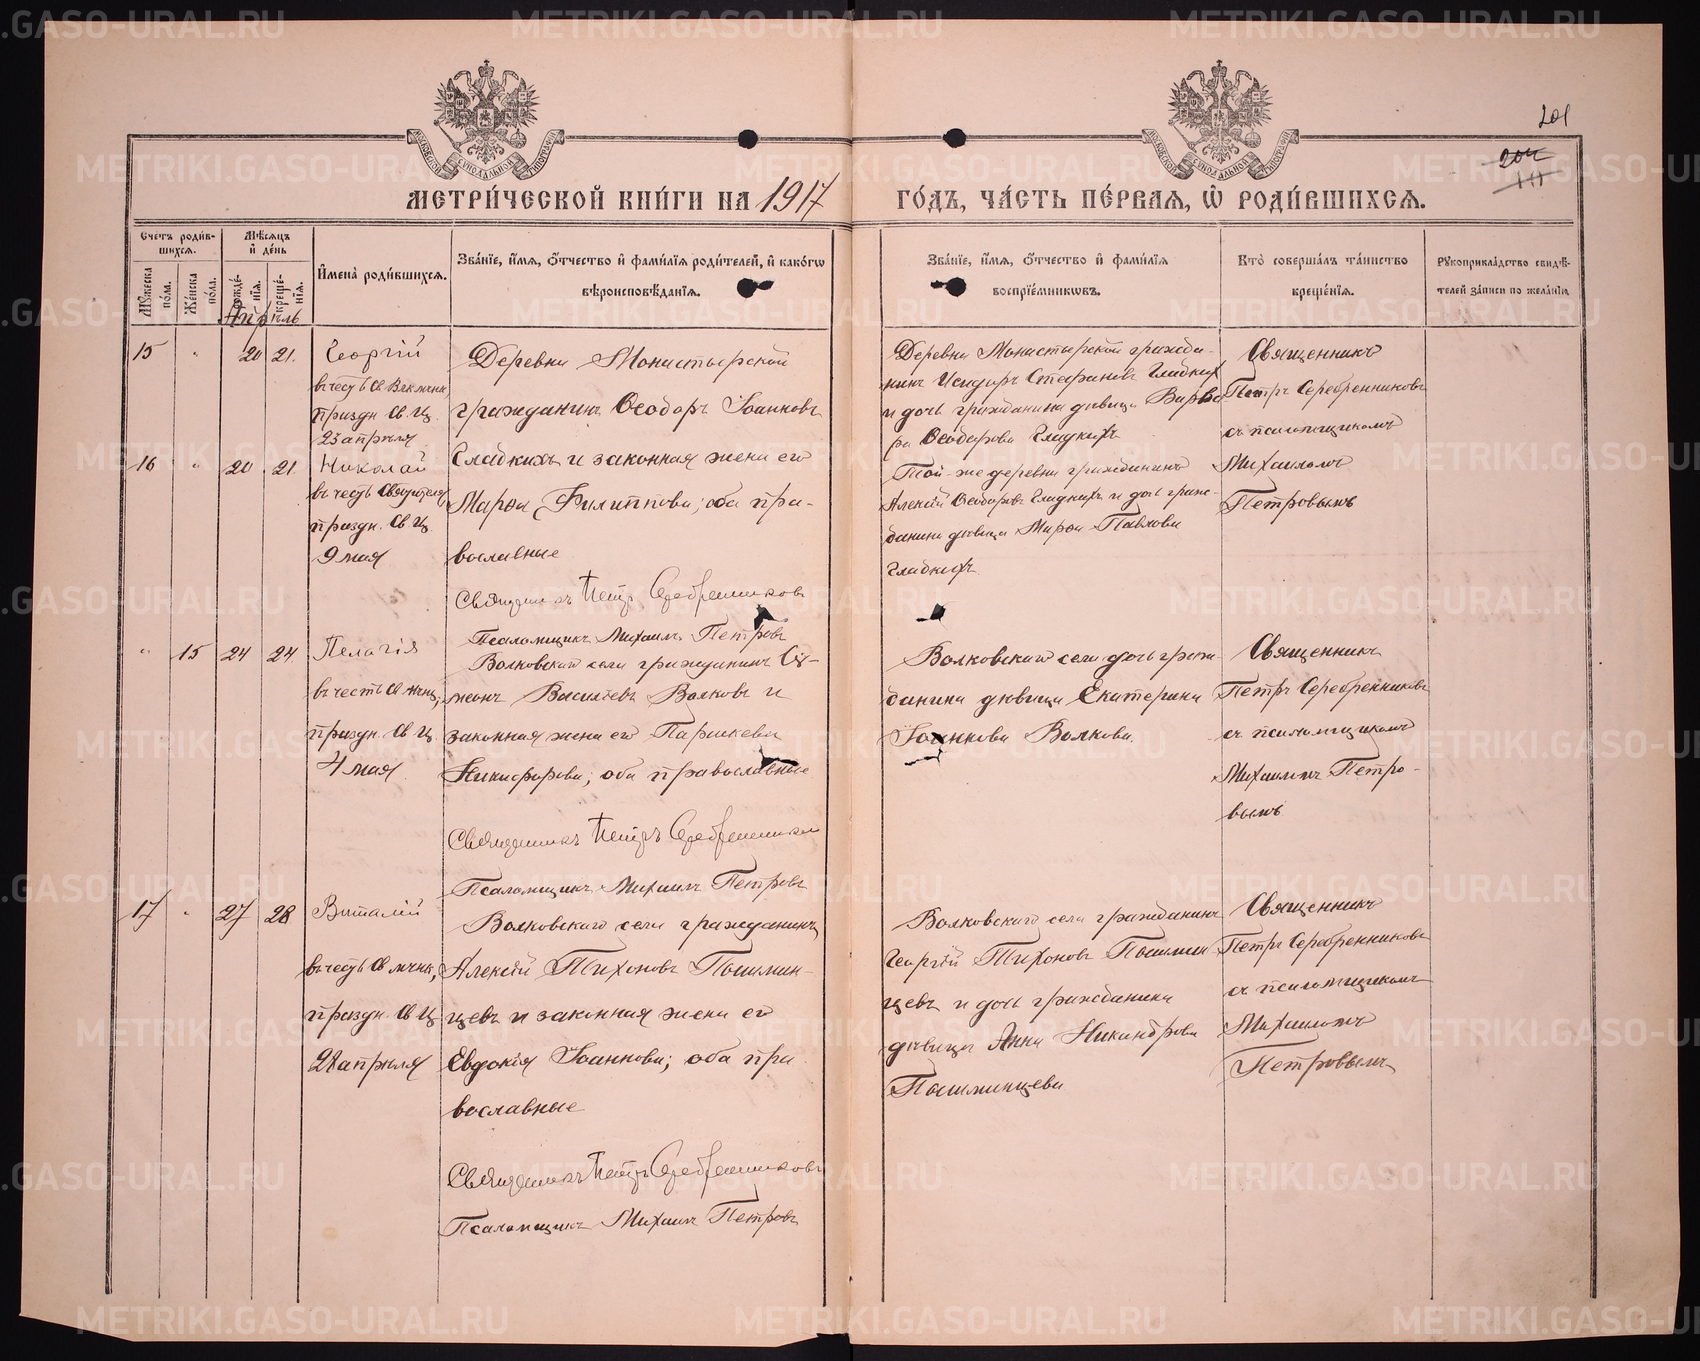 201
204
111
МЕТРИ́ЧЕСКОЙ КНИ́ГИ НА 1917 ГО́ДЪ, ЧА́СТЬ ПЕ́РВАЯ, Ѿ РОДИ́ВШИХСЯ.
Сче́тъ роди́в-
шихся.
Му́жеска по́ла.
Же́нска по́ла.
Мѣ́сяцъ
и҆ де́нь
рожде́-
нїя.
креще́-
нїя.
И҆мена̀ роди́вшихся.
Зва́нїе, и҆́мя, ѻ҆́тчество и҆ фами́лїя роди́телей, и҆ како́гѡ
вѣроисповѣ́данїя.
Зва́нїе, и҆́мя, ѻ҆́тчество и҆ фами́лїя
воспрїе́мникѡвъ.
Кто̀ соверша́лъ та́инство
креще́нїя.
Рꙋкоприкла́дство свидѣ́-
телей за́писи по жела́нїю
Апрѣль
15 " 20 21.
Георгій
въ честь св Вел.мчни
праздн. св Ц.
23 апрѣля
16 " 20 21
Николай
въ честь Святителя
праздн. св Ц.
9 мая
Деревни Монастырской
гражданинъ Ѳеодоръ Іоанновъ
Гладкихъ и законная жена его
Марѳа Филиппова; оба пра-
вославные
Священникъ Петръ Серебренниковъ
Псаломщикъ Михаилъ Петровъ
Деревни Монастырской гражда-
нинъ Исидоръ Стефановъ Гладких
и дочь гражданина дѣвица Варва
ра Ѳеодорова Гладкихъ
Той-же деревни гражданинъ
Алексій Ѳеодоровъ Гладкихъ и дочь граж-
данина дѣвица Марѳа Павлова
Гладкихъ
Священникъ
Петръ Серебренниковъ
съ псаломщикомъ
Михаиломъ
Петровымъ
" 15 24 24
Пелагія
въ честь св мчнц,
праздн. св Ц.
4 мая
Волковскаго села гражданинъ Си-
меонъ Васильевъ Волковъ и
законная жена его Параскева
Никифорова; оба православные
Священникъ Петръ Серебренников
Псаломщикъ Михаилъ Петровъ
Волковскаго села дочь граж
данина дѣвица Екатерина
Іоаннова Волкова
Священникъ
Петръ Серебренниковъ
съ псаломщикомъ
Михаиломъ Петро-
вымъ
17 " 27 28
Виталій
въ честь св мчнк,
праздн. св Ц
28 апрѣля
Волковскаго села гражданинъ
Алексій Тихоновъ Пышмин-
цевъ и законная жена его
Евдокія Іоаннова; оба пра
вославные
Священникъ Петръ Серебренниковъ
Псаломщикъ Михаилъ Петровъ
Волковскаго села гражданинъ
Георгій Тихоновъ Пышмин
цевъ и дочь гражданина
дѣвица Анна Никандрова
Пышминцева
Священникъ
Петръ Серебренниковъ
съ псаломщикомъ
Михаиломъ
Петровымъ
METRIKI.GASO-URAL.RU